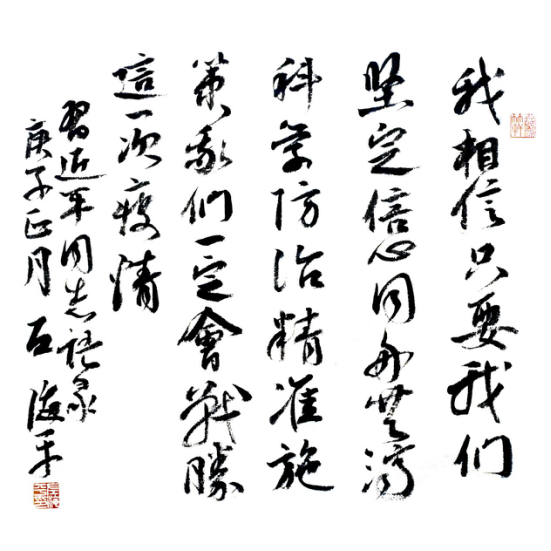 我相信只要我们
坚定信心同舟共濟
科学防治精准施
策我们一定會战勝
這一次疫情
習近平同志語录
庚子正月石海平